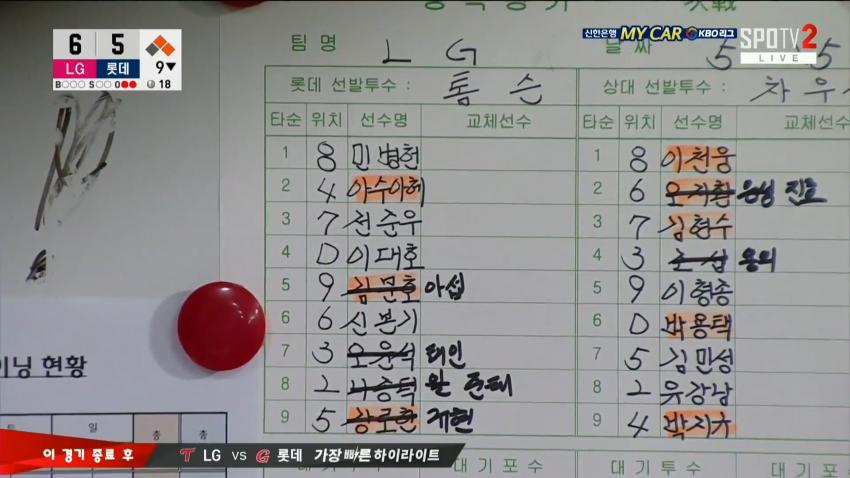 6 5
LG 롯데 9▼
B S O 18
신한은행 MY CAR KBO리그
SPOTV2
LIVE
팀 명 LG 날 짜 5
롯데 선발투수 : 톰슨 상대 선발투수 : 차우
타순 위치 선수명 교체선수 타순 위치 선수명 교체선수
1 8 민병헌 1 8 이천웅
2 4 아수아헤 2 6 오지환 윤성 진호
3 7 전준우 3 7 김현수
4 D 이대호 4 3 용의
5 9 김문호 아섭 5 9 이형종
6 6 신본기 6 D 박용택
7 3 오윤석 태인 7 5 김민성
8 2 나종덕 완 준태 8 2 유강남
9 5 강로한 계현 9 4 박지규
이닝 현황
일 총 총
대기포수 대기투수 대기
이 경기 종료 후 T LG VS G 롯데 가장 빠른 하이라이트